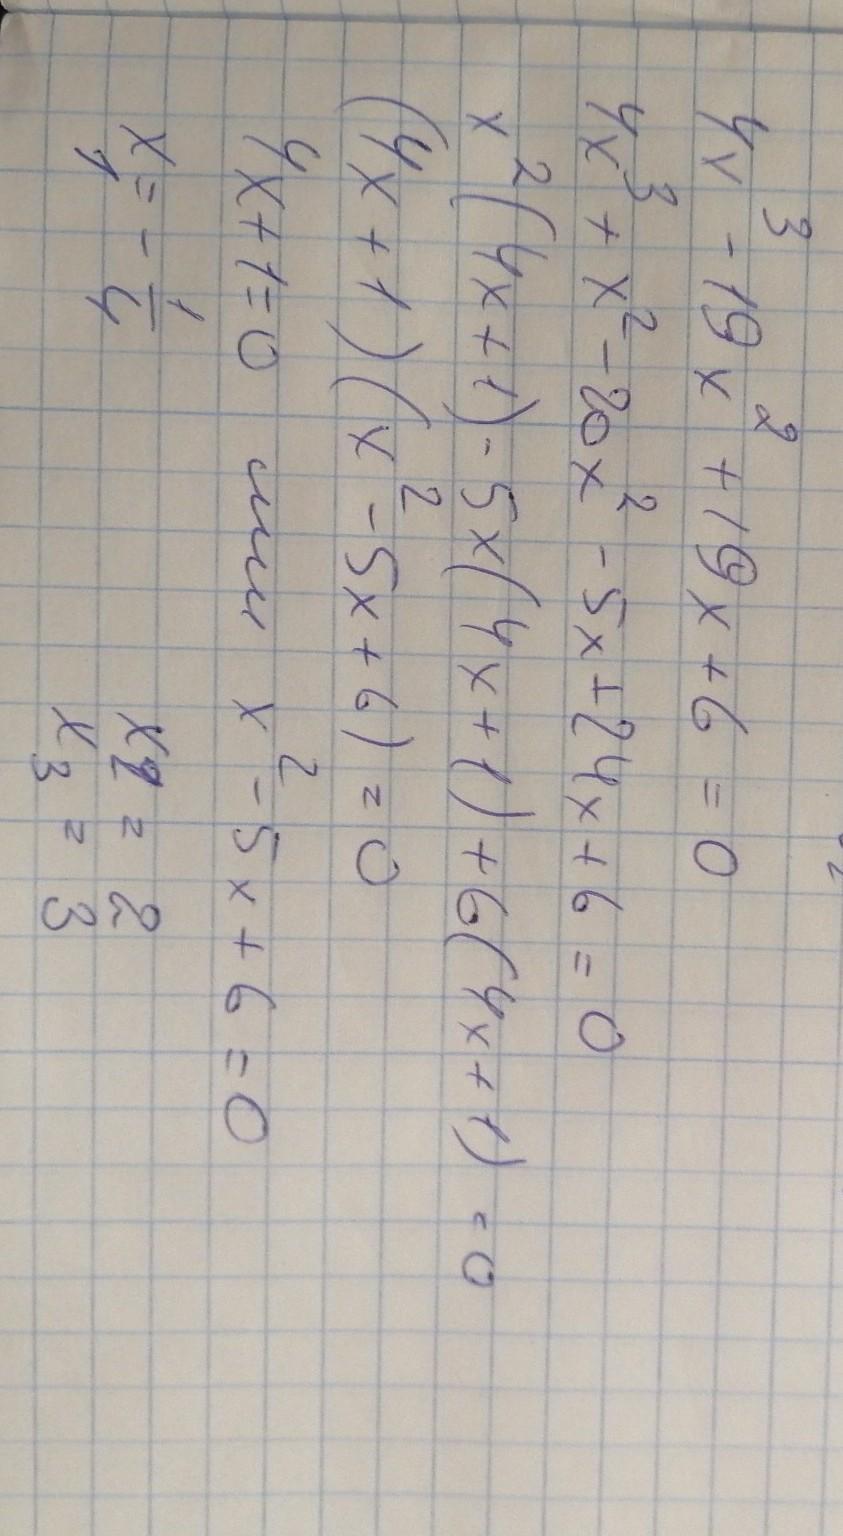 4x³ - 19x² + 19x + 6 = 0
4x³ + x² - 20x² - 5x + 24x + 6 = 0
x²(4x + 1) - 5x(4x + 1) + 6(4x + 1) = 0
(4x + 1)(x² - 5x + 6) = 0
4x + 1 = 0 или x² - 5x + 6 = 0
x₁ = - 1/4 x₂ = 2
x₃ = 3